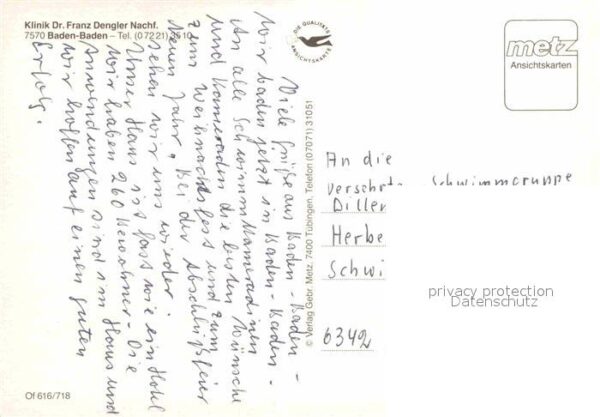 Klinik Dr. Franz Dengler Nachf.
7570 Baden-Baden – Tel. (07221) 3510
DIE QUALITÄTS
ANSICHTSKARTE
metz
Ansichtskarten
Viele Grüße aus Baden-Baden-
Wir baden jetzt in Baden-Baden-
An alle Schwimmkameradinen
und Kameraden die besten Wünsche
zum Weihnachtsfest und zum
neuen Jahr. Bei der Abschlußfeier
sehen wir uns wieder.
Unser Haus ist fast wie ein Hotel
wir haben 260 Bewohner - Die
Anwendungen sind im Haus und
wir hoffen auf einen guten
Erfolg.
© Verlag Gebr. Metz, 7400 Tübingen, Telefon (07071) 31051
An die
Versehrt Schwimmgruppe
Diller
Herbe
Schwi
6342
privacy protection
Datenschutz
Of 616/718